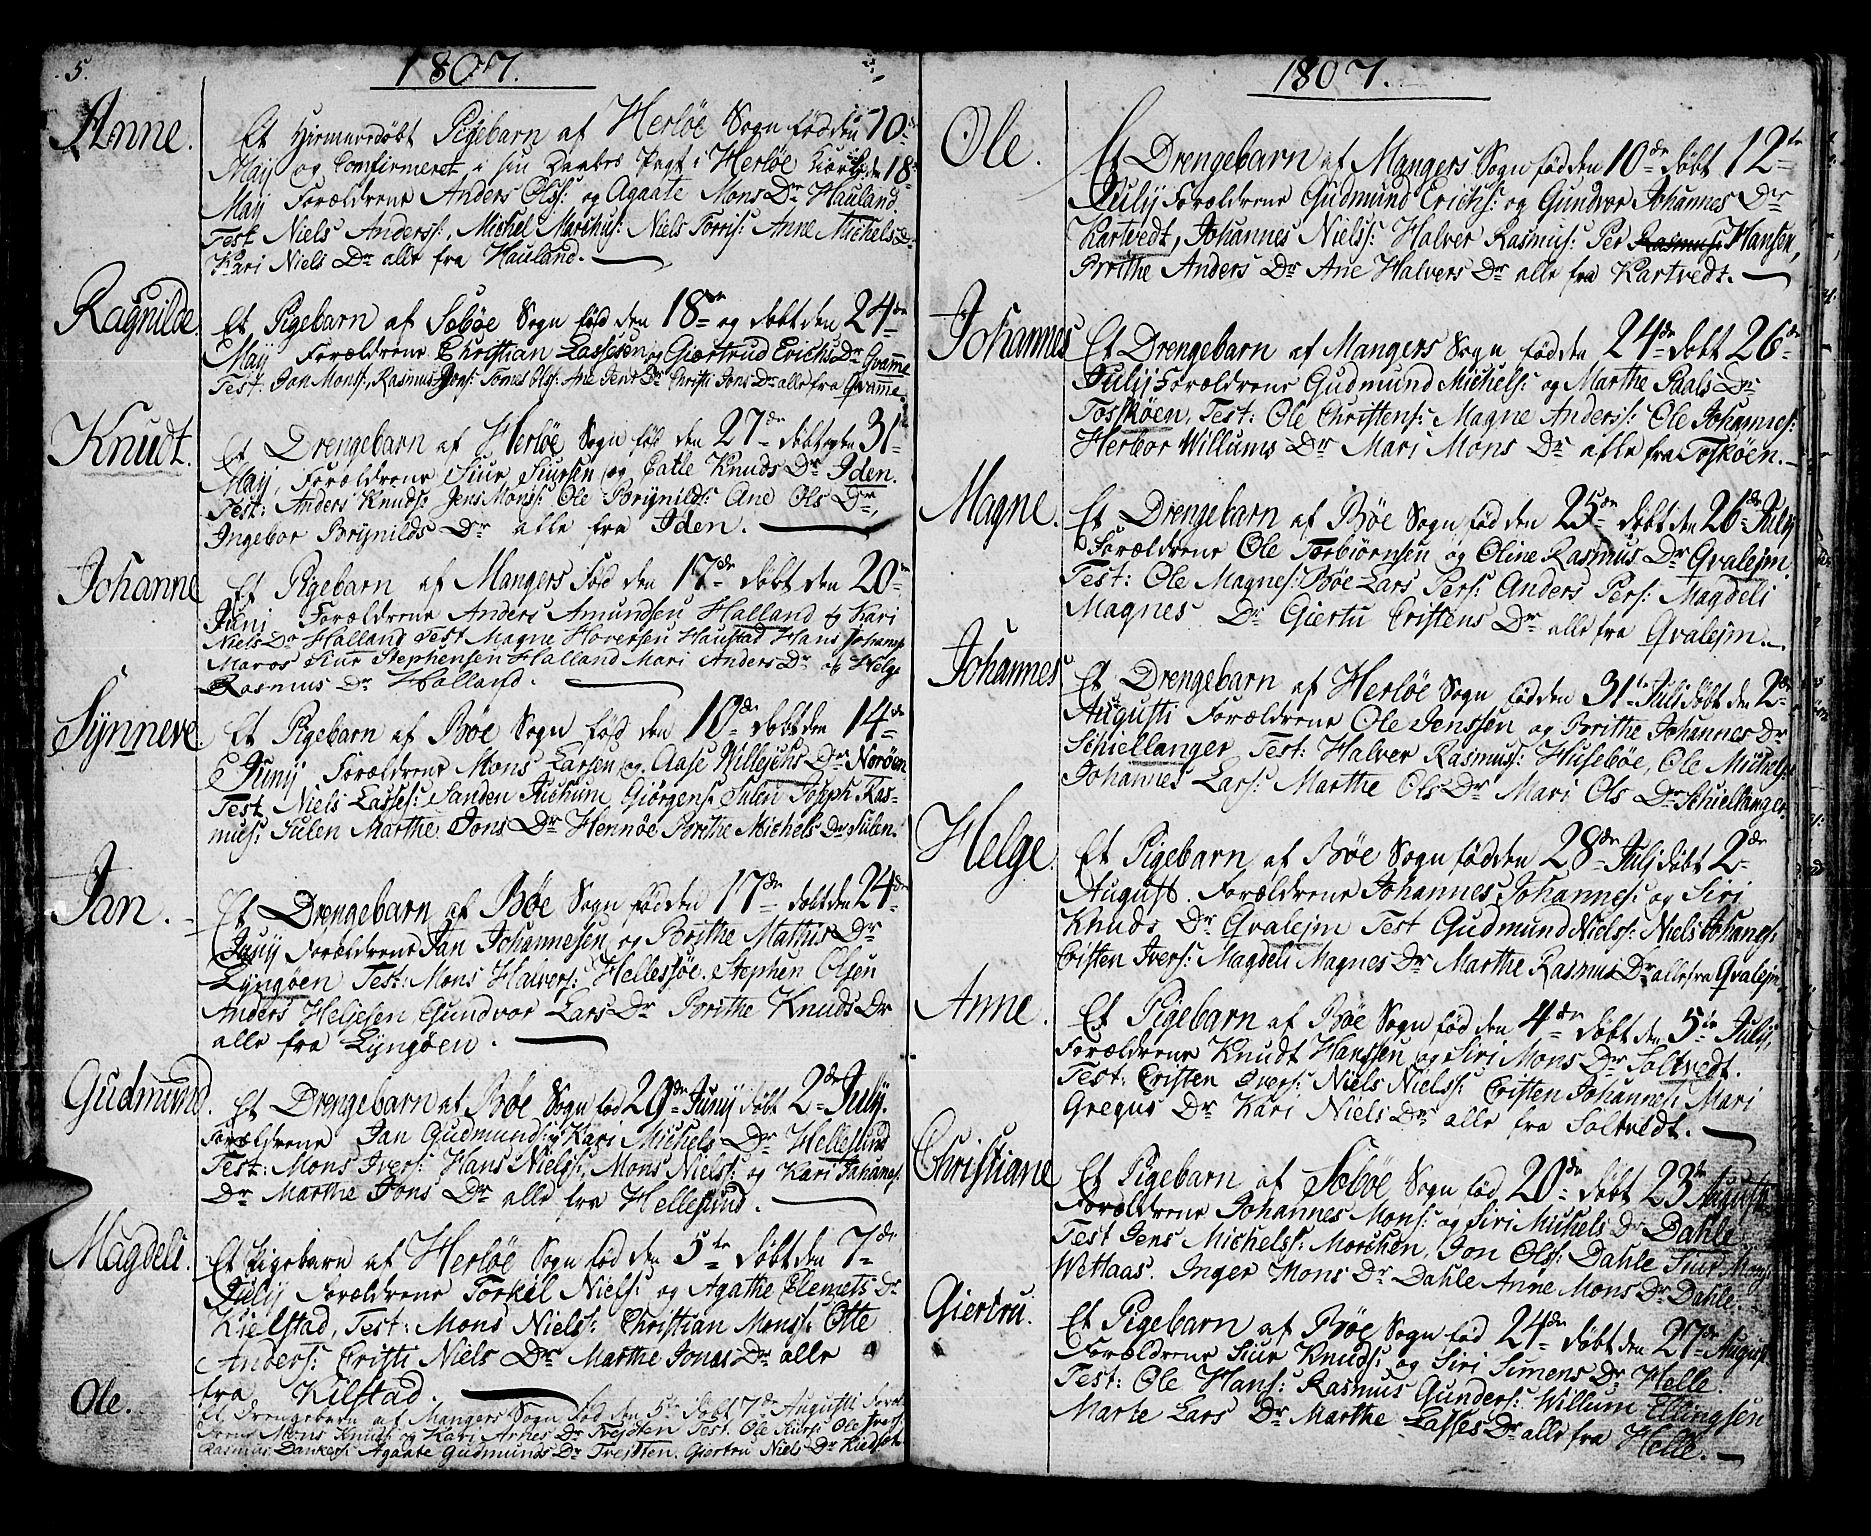 5.
1807.
Anne.
Et Hiemmedøbt Pigebarn af Herløe Sogn fød den 10de
Maij og Comfirmeret i sin Daabes Pagt i Herløe Kierke den 18de
Maij Forældrene Anders Ols: og Agaate Mons Dr Hauland.
Test Niels Anderss: Michel Marchus: Niels Torris: Anne Michels Dr
Kari Niels Dr alle fra Hauland.
Ragnilde.
Et Pigebarn af Sæbøe Sogn fød den 18de og døbt den 24de
Maij Forældrene Christian Lassesen og Giærtrud Erichs Dr Qvamme
Test: Jan Mons:, Rasmus Jons: Tomes Ols: Ane Jens Dr Christi Jons Dr alle fra Qvamme.
Knudt.
Et Drengebarn af Herløe Sogn fød den 27de døbt den 31te
Maij, Forældrene Siur Siursen og Catle Knuds Dr Iden.
Test: Anders Knuds: Jens Mons: Ole Brijnilds: Ane Ols Dr,
Ingebor Brijnilds Dr alle fra Iden.
Johanne
Et Pigebarn af Mangers Fød den 17de døbt den 20de
Junj Forældrene Anders Amundsen Halland & Kari
Niels Dr Halland Test Magne Hoversen Haustad Hans Johans
Maros Siur Stephensen Halland Mari Anders Dr og Helge
Rasmus Dr Halland.
Synneve.
Et Pigebarn af Bøe Sogn fød den 10de døbt den 14de
Junij Forældrene Mons Larsen og Aase Willesens Dr Norøen
Test Niels Lasses: Sanden Juchum Giørgens: Sulen Joseph Ras-
mus: Sulen Marthe Jons Dr Hennøe Brithe Michels Dr Sulen.
Jan.
Et Drengebarn af Bøe Sogn fød den 17de døbt den 24de
Junij Forældrene Jan Johannesen og Brithe Mathis Dr
Lyngøen Test: Mons Halvors: Hellesøe. Stephen Olsen
Anders Heljesen Gundvor Lars Dr Brithe Knuds Dr
alle fra Lyngøen.
Gudmund.
Et Drengebarn af Bøe Sogn fød 29de Junij døbt 2de Julij.
Forældrene Jan Gudmunds: og Kari Michels Dr Hellesund
Test: Mons Ivers: Hans Niels: Mons Niels: og Kari Johanes
Dr Marthe Jons Dr alle fra Hellesund.
Magdeli.
Et Pigebarn af Herløe Sogn fød den 5te døbt den 7de
Julij Forældrene Torkel Niels: og Agathe Clemets Dr
Kielstad, Test: Mons Niels: Christian Mons: Otte
Anders: Cristi Niels Dr Marthe Jonas Dr alle
fra Kilstad.
Ole.
Et Drengebarn af Mangers Sogn fød den 5te døbt 7de Augusti Foræl-
drene Mons Knuds: og Kari Arnes Dr Trejdten Test. Ole Siurs: Ole Ivers:
Rasmus Dankers: Agaate Gudmunds Dr Trejdten. Giertru Niels Dr
1807.
Ole.
Et Drengebarn af Mangers Sogn fød den 10de døbt 12te
Julij Forældrene Gudmund Erichs: og Gundvor Johannes Dr
Kartvedt, Johannes Niels: Halver Rasmus: Per Rasmus: Hansen,
Brithe Anders Dr Ane Halvers Dr alle fra Kartvedt.
Johannes
Et Drengebarn af Mangers Sogn fød den 24de døbt 26de
Julij Forældrene Gudmund Michels: og Marthe Paals Dr
Toskøen, Test: Ole Christens: Magne Anders: Ole Johannes:
Herbor Willums Dr Mari Mons Dr alle fra Toskøen.
Magne.
Et Drengebarn af Bøe Sogn fød den 25de døbt den 26de Julij
Forældrene Ole Torbiørnsen og Oline Rasmus Dr Qvalejm
Test: Ole Magnes: Bøe Lars Pers: Anders Pers: Magdeli
Magnes Dr Giertu Cristens Dr alle fra Qvalejm.
Johannes
Et Drengebarn af Herløe Sogn fød den 31te Juli døbt den 2de
Augusti Forældrene Ole Jenssen og Brithe Johannes Dr
Schiellanger Test: Halver Rasmus: Husebøe, Ole Michels
Johannes Lars: Marthe Ols Dr Mari Ols Dr Schiellanger.
Helge.
Et Pigebarn af Bøe Sogn fød den 28de Julj døbt 2de
August. Forældrene Johannes Johannes: og Siri
Knuds Dr Qvalejm Test Gudmund Niels: Niels Johanes:
Cristen Ivers: Magdeli Magnes Dr Marthe Rasmus Dr alle fra Qvalejm.
Anne.
Et Pigebarn af Bøe Sogn fød den 4de døbt den 5te Julij
Forældrene Knudt Hanssen og Siri Mons Dr Soltvedt.
Test: Cristen Ivers: Niels Niels: Cristen Johannes: Mari
Gregus Dr Kari Niels Dr alle fra Soltvedt.
Christiane
Et Pigebarn af Sæbøe Sogn fød 20de døbt 23de Augusti
Forældrene Johannes Mons: og Siri Michels Dr Dahle
Test Jens Michels: Morchen, Jon Ols: Dahle Siur Mons:
Wetlaas. Inger Mons Dr Dahle Anne Mons Dr Dahle.
Giertru.
Et Pigebarn af Bøe Sogn fød 24de døbt den 27de August
Forældrene Siur Knuds: og Siri Simens Dr Helle.
Test: Ole Hans: Rasmus Gunders: Willum Ellingsen
Marte Lars Dr Marthe Lasses Dr alle fra Helle.